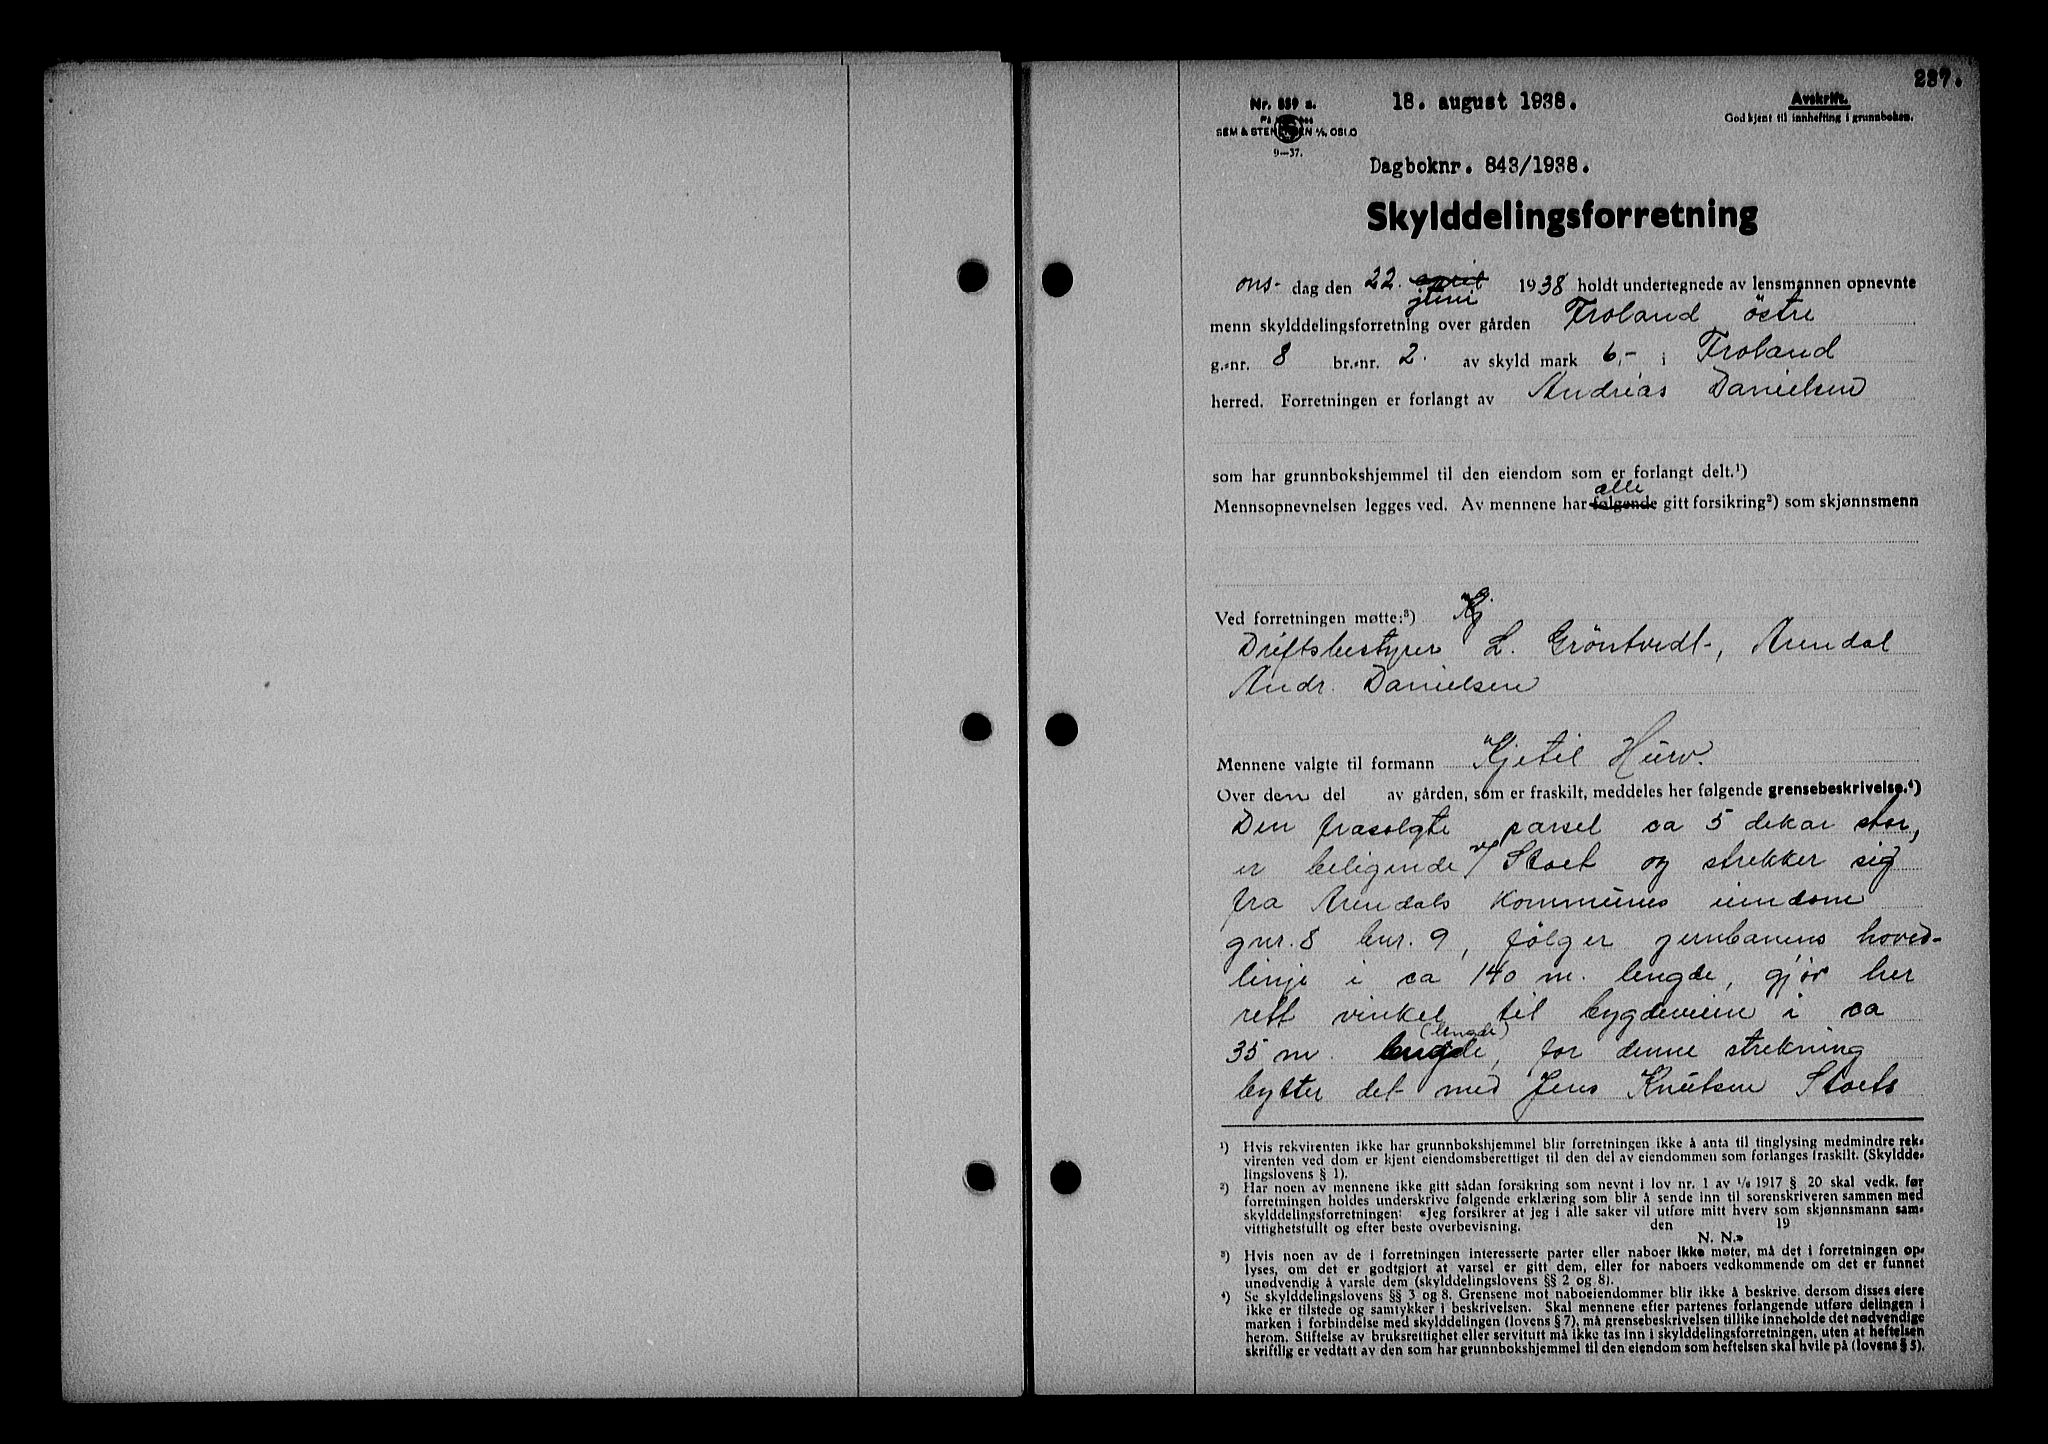 287.
18. august 1938.
Avskrift.
Godkjent til innhefting i grunnboken.
Nr. 859 a.
SEM & STENERSEN A/S, OSLO
9—37.
Dagboknr. 843/1938.
Skylddelingsforretning
ons- dag den 22. april juni 1938 holdt undertegnede av lensmannen opnevnte
menn skylddelingsforretning over gården Froland östre
g.-nr. 8 br.-nr. 2. av skyld mark 6,- i Froland
herred. Forretningen er forlangt av Andreas Danielsen
som har grunnbokshjemmel til den eiendom som er forlangt delt.¹)
alle
Mennsopnevnelsen legges ved. Av mennene har følgende gitt forsikring²) som skjønnsmenn
Ved forretningen møtte:³) Kj
Driftsbestyrer L. Gröntvedt, Arendal
Andr. Danielsen
Mennene valgte til formann Kjetil Hurv.
Over den del av gården, som er fraskilt, meddeles her følgende grensebeskrivelse.⁴)
Den frasolgte parsel ca 5 dekar stor,
er beligende v/ Stoet og strekker sig
fra Arendals kommunes eiendom
gnr. 8 bnr. 9, fölger jernbanens hoved-
linje i ca 140 m. lengde, gjör her
rett vinkel til bygdeveien i ca
35 m. lengde (lengde), for denne strekning
bytter det med Jens Knutsen Stoets
¹) Hvis rekvirenten ikke har grunnbokshjemmel blir forretningen ikke å anta til tinglysing medmindre rek-
virenten ved dom er kjent eiendomsberettiget til den del av eiendommen som forlanges fraskilt. (Skyldde-
lingslovens § 1).
²) Har noen av mennene ikke gitt sådan forsikring som nevnt i lov nr. 1 av 1/6 1917 § 20 skal vedk. før
forretningen holdes underskrive følgende erklæring som blir å sende inn til sorenskriveren sammen med
skylddelingsforretningen: «Jeg forsikrer at jeg i alle saker vil utføre mitt hverv som skjønnsmann sam-
vittighetsfullt og efter beste overbevisning. den 19
N. N.»
³) Hvis noen av de i forretningen interesserte parter eller naboer ikke møter, må det i forretningen op-
lyses, om det er godtgjort at varsel er gitt dem, eller for naboers vedkommende om det er funnet
unødvendig å varsle dem (skylddelingslovens §§ 2 og 8).
⁴) Se skylddelingslovens §§ 3 og 8. Grensene mot naboeiendommer blir ikke å beskrive, dersom disses eiere
ikke er tilstede og samtykker i beskrivelsen. Skal mennene efter partenes forlangende utføre delingen i
marken i forbindelse med skylddelingen (lovens § 7), må grensebeskrivelsen tillike inneholde det nødvendige
herom. Stiftelse av bruksrettighet eller servitutt må ikke tas inn i skylddelingsforretningen, uten at heftelsen
skriftlig er vedtatt av den som har grunnbokshjemmel til den eiendom som heftelsen skal hvile på (lovens § 5).